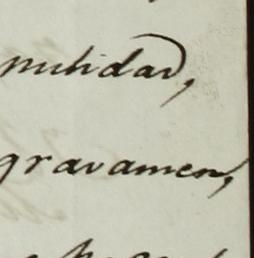 nulidad,
gravamen,